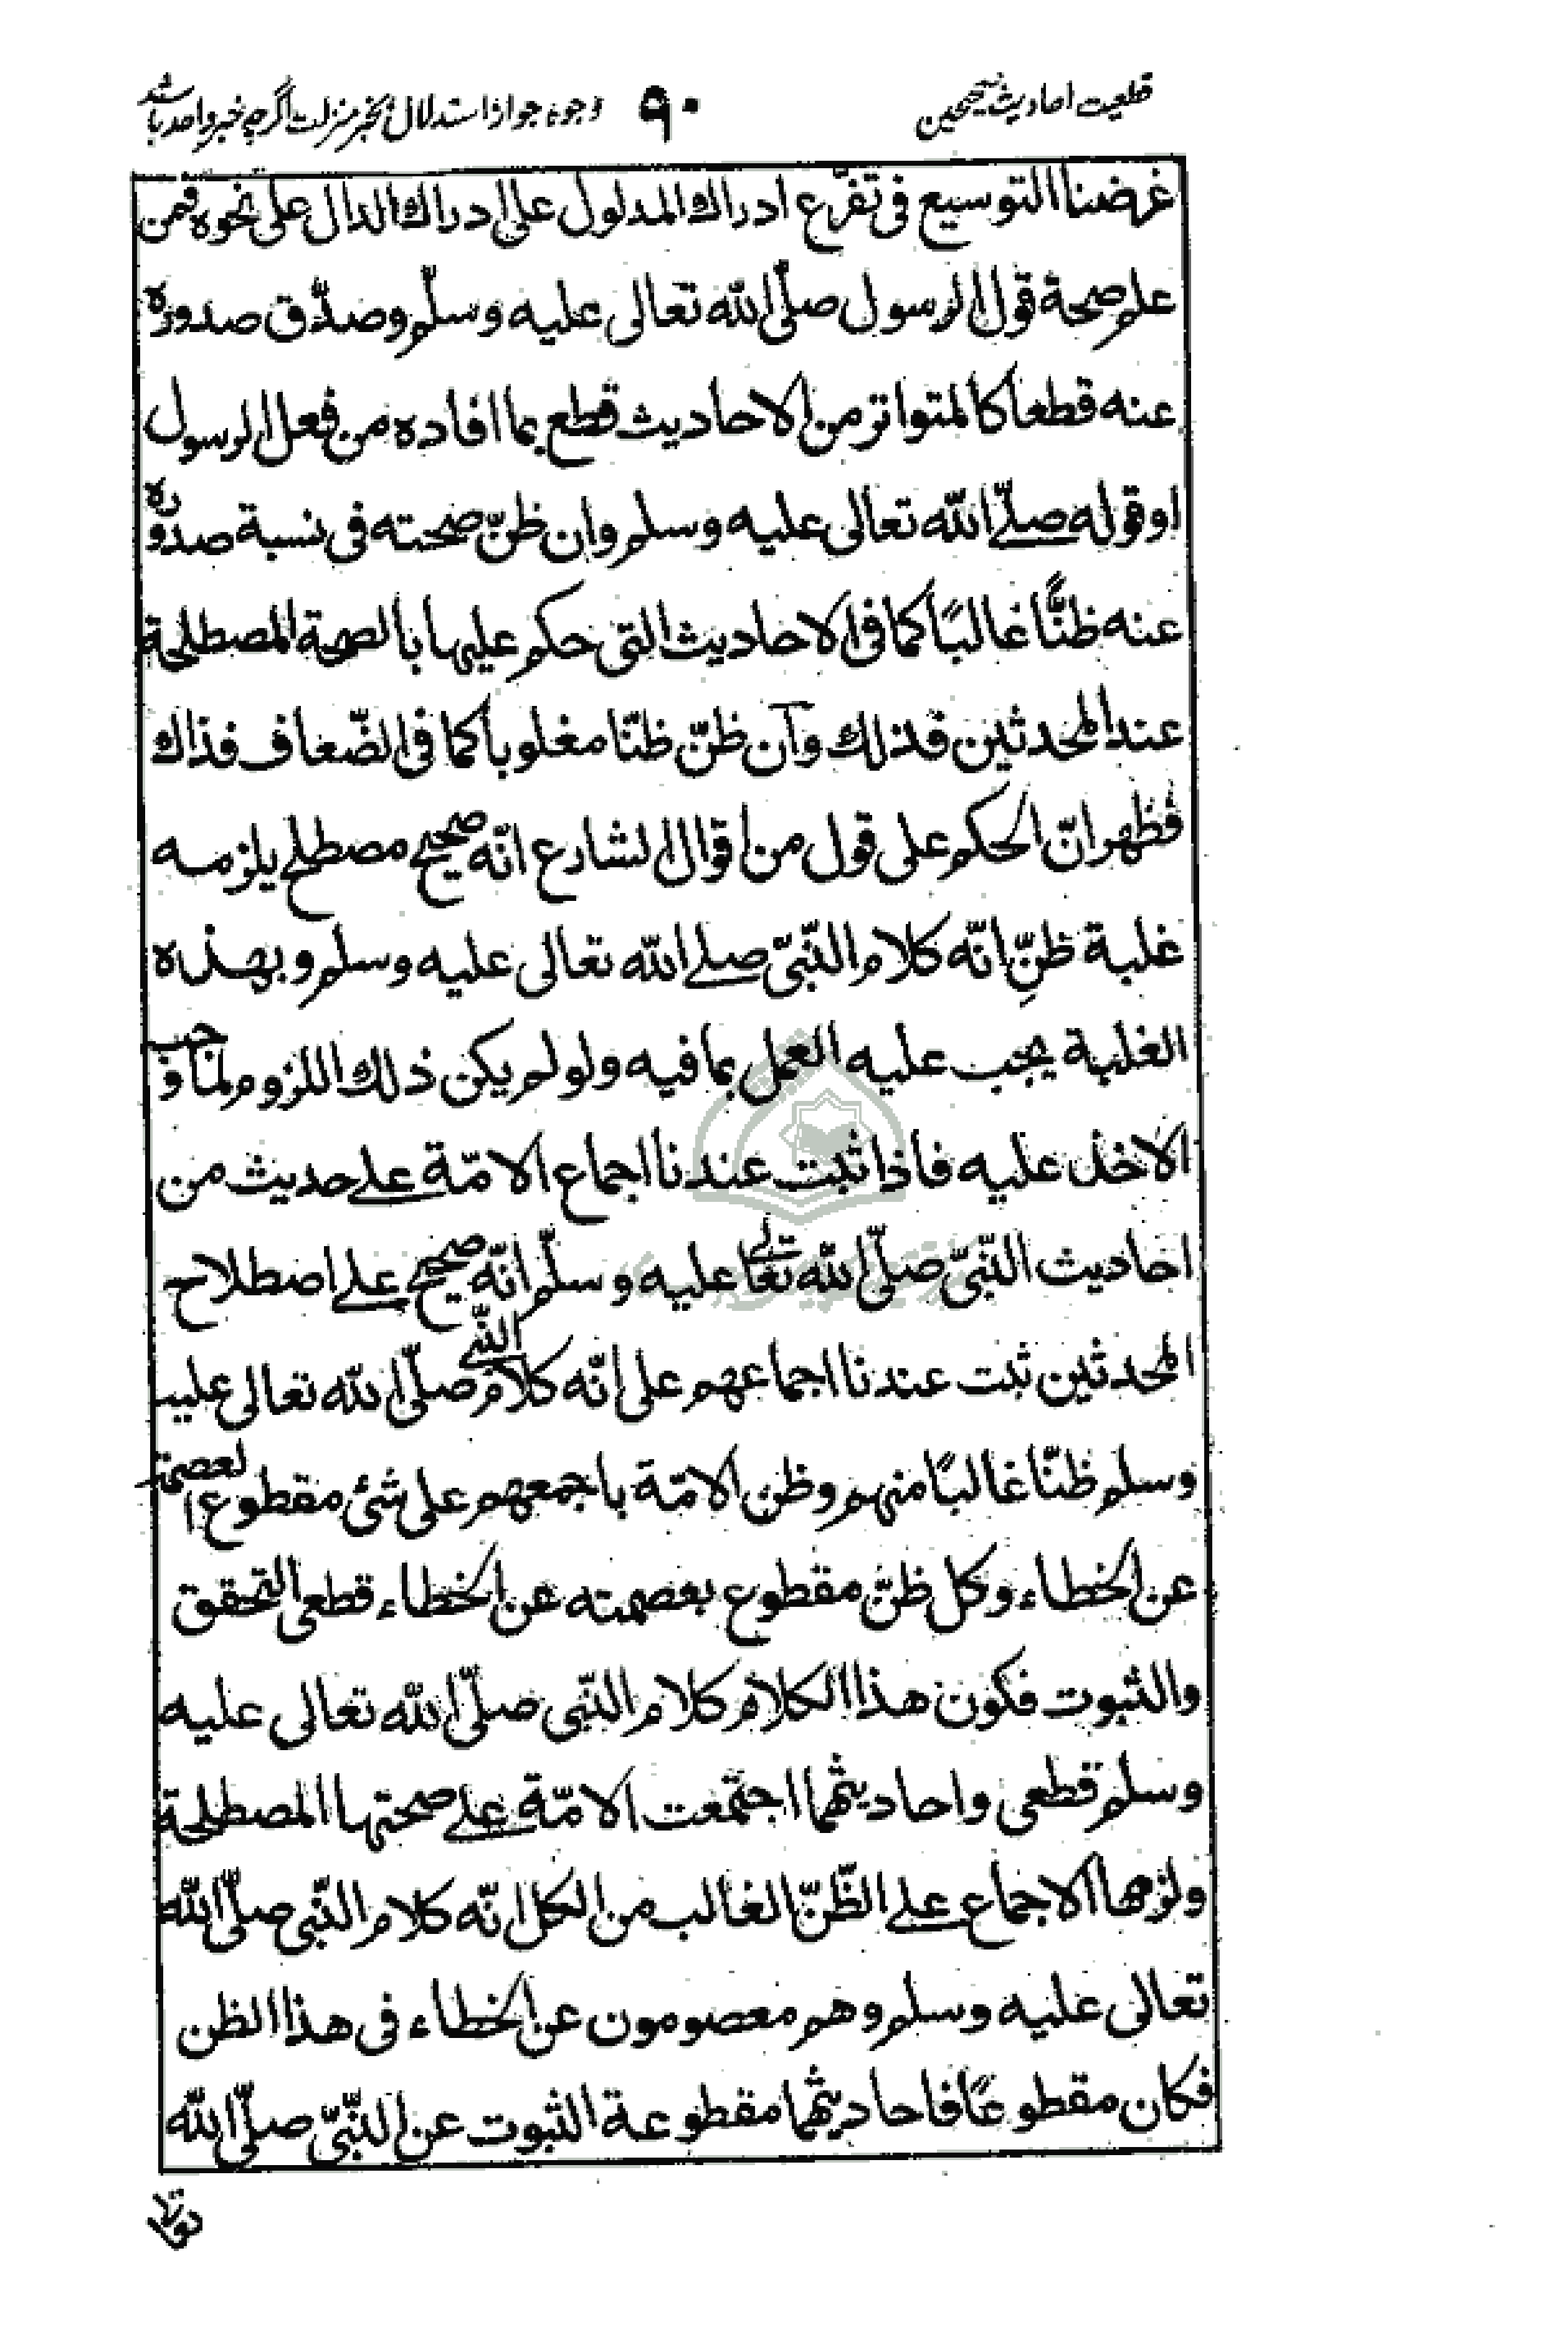 قطعیت احادیث صحیحین ۹۰ وجوه جواز استدلال بخبر منزلت اگرچه خبر واحد باشد
غرضنا التوسیع فی تفرّع ادراك المدلول علی ادراك الدال علی نحوه فمن
علم صحة قول الرسول صلّی الله تعالی علیه وسلّم وصدّق صدوره
عنه قطعا كالمتواتر من الاحادیث قطع بما افاده من فعل الرسول
او قوله صلّے الله تعالی علیه وسلم وان ظنّ صحته فی نسبة صدوره
عنه ظنًّا غالبًا كما فی الاحادیث التی حكم علیها بالصحة المصطلحة
عند المحدثین فذلك وان ظنّ ظنّا مغلوبا كما فی الضّعاف فذاك
فظهر انّ الحكم علی قول من اقوال الشارع انّه صحیح مصطلح یلزمه
غلبة ظنِّ انّه كلام النّبیّ صلے الله تعالی علیه وسلم وبهذه
الغلبة یجب علیه العمل بما فیه ولو لم یكن ذلك اللزوم لما وجب
الاخذ علیه فاذا ثبت عندنا اجماع الامّة علے حدیث من
احادیث النّبیّ صلّی الله تعالی علیه وسلّم انّه صحیح علے اصطلاح
المحدثین ثبت عندنا اجماعهم علی انّه كلام النّبی صلّی الله تعالی علیه
وسلم ظنّا غالبًا منهم وظن الامّة باجمعهم علی شئ مقطوع العصمة
عن الخطاء وكل ظنّ مقطوع بعصمته عن الخطاء قطعی التحقق
والثبوت فكون هذا الكلام كلام النّبی صلّی الله تعالی علیه
وسلم قطعی واحادیثهما اجتمعت الامّة علے صحتها المصطلحة
ولزمها الاجماع علے الظّنّ الغالب من الكل انّه كلام النّبی صلّی الله
تعالی علیه وسلم وهم معصومون عن الخطاء فی هذا الظن
فكان مقطوعًا فاحادیثهما مقطوعة الثبوت عن النّبیّ صلّی الله
تعالی